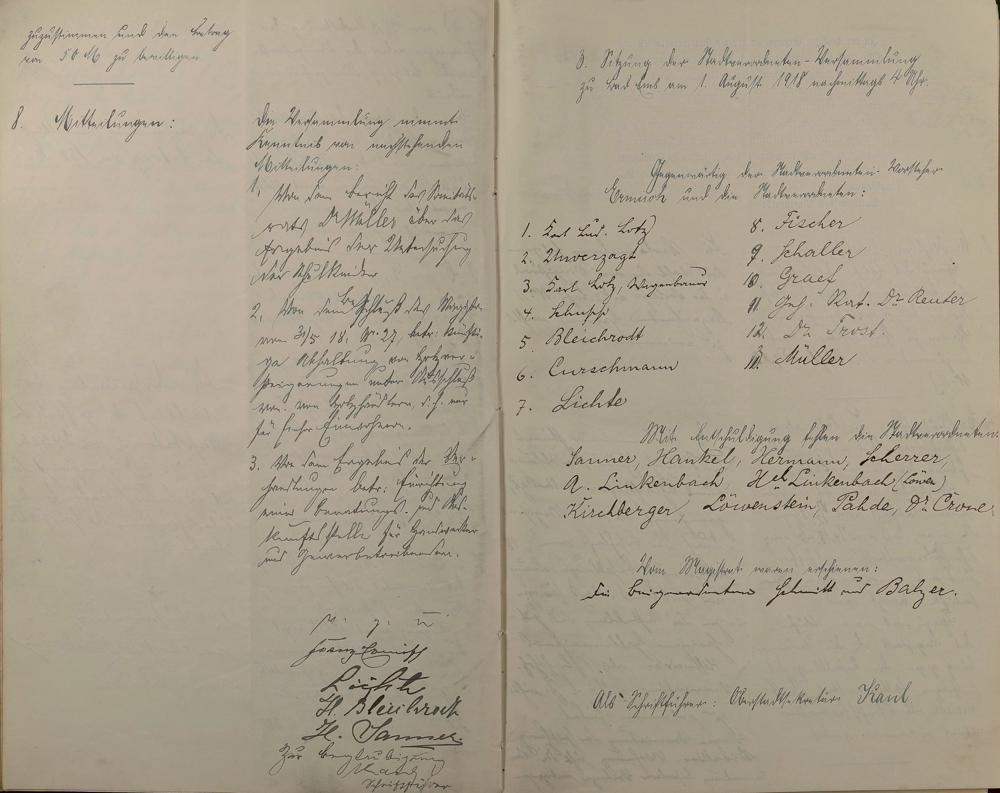 zuzustimmen und den Betrag
von 50 M zu bewilligen
8. Mitteilungen:
Die Versammlung nimmt
Kenntnis von nachstehenden
Mitteilungen:
1. Von dem Bericht des Sanitäts-
rats Dr Müller über das
Ergebnis der Untersuchung
der Schulkinder
2. Von dem Beschluß des Magistr.
vom 31/5 18. Nr. 27, betr. künfti-
ge Abhaltung von Holzver-
steigerungen unter Ausschluß
von Holzhändlern, d. h. nur
für Einwohner.
3. Von dem Ergebnis der Ver-
handlungen betr. Einrichtung
einer Beratungs- und Aus-
kunftsstelle für Handwerker
und Gewerbetreibenden.
v. g. u.
Franz Ermisch
Lichte
H. Bleichrodt
H. Sanner
Zur Beglaubigung
Kaul
Schriftführer
3. Sitzung der Stadtverordneten-Versammlung
zu Bad Ems am 1. August 1918 nachmittags 4 Uhr.
Gegenwärtig der Stadtverordneten-Vorsteher
Ermisch und die Stadtverordneten:
1. Karl Lud. Lotz
2. Unverzagt
3. Karl Lotz, Wagenbauer
4. Schupp
5. Bleichrodt
6. Curschmann
7. Lichte
8. Fischer
9. Schaller
10. Graef
11. Geh. Rat. Dr Reuter
12. Dr. Trost.
13. Müller
Mit Entschuldigung fehlen die Stadtverordneten.
Sanner, Hankel, Hermann, Scherrer,
A. Linkenbach, Hch Linkenbach (Löwen)
Kirchberger, Löwenstein, Pahde, Dr. Crone.
Vom Magistrat waren erschienen:
die Beigeordneten Schmitt und Balzer.
Als Schriftführer: Oberstadtsekretär Kaul.